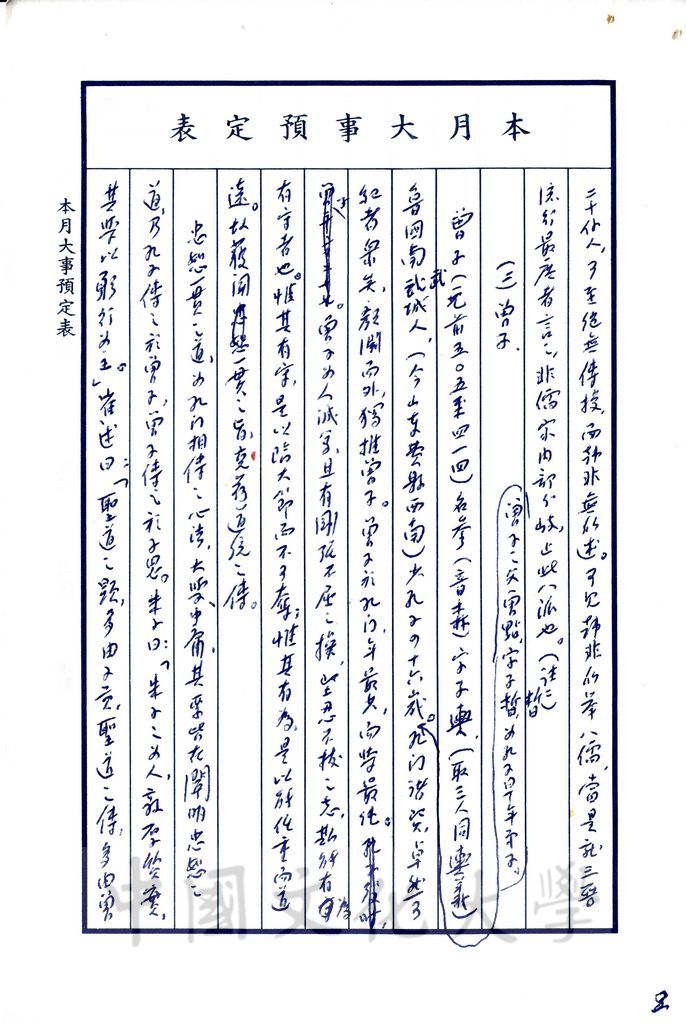 本月大事預定表
二十餘人，了至絕無傳授，而韓非無所述。可見韓非所舉八儒，當是就三晉
流行最廣者言之，非儒家內部分歧止此八派也。（註三）
（三）曾子．
曾子之父曾點，字子皙，為孔子早年弟子。
皙
曾子（元前五〇五至四一四）名參（音森）字子輿，（取三人同輿之義）
魯國南武城人，（今山東費縣西南）少孔子四十六歲。孔門諸賢，卓然可
武
紀者眾矣，顏淵而外，獨推曾子。曾子於孔門，年最少，而學最純。
曾子為人誠篤，且有剛強不屈之操，堅忍不拔之志，斯能有為
有守者也。惟其有守，是以臨大節而不可奪；惟其有為，是以能任重而道
遠。故獲聞一貫之旨，克荷道統之傳。
忠恕一貫之道，為孔門相傳之心法，大學、中庸其要皆在闡明忠恕之
道，乃孔子傳之於曾子，曾子傳之於子思。朱子曰：「朱子之為人，敦厚質實，
其學以躬行為主。」崔述曰：「聖道之顯，多由子貢，聖道之傳，多由曾
本月大事預定表
中國文化大學
2